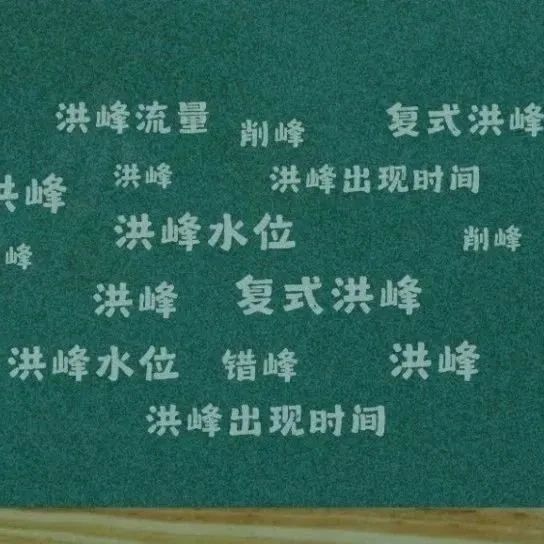 洪峰流量 削峰 复式洪峰
洪峰 洪峰出现时间
洪峰
洪峰水位 削峰
峰
洪峰 复式洪峰
洪峰水位 错峰 洪峰
洪峰出现时间